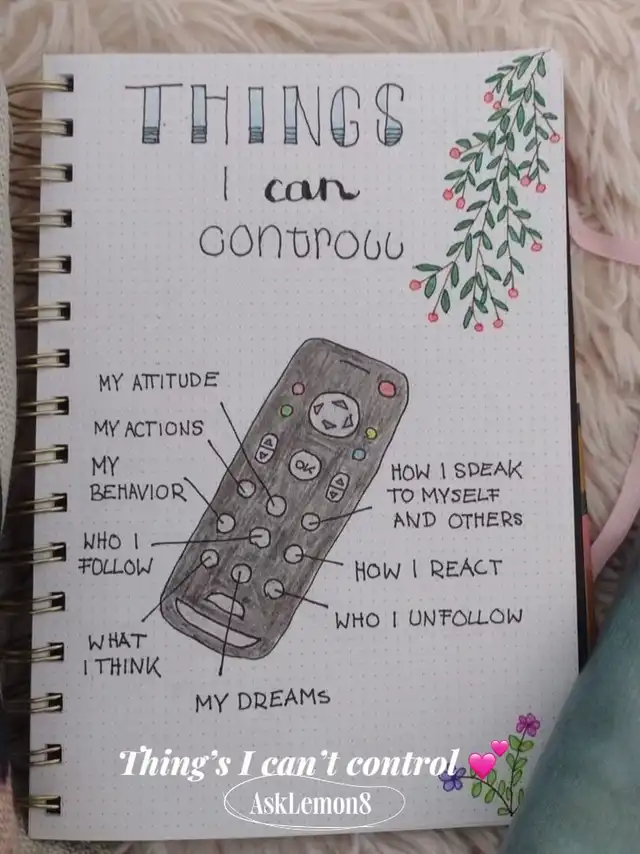 THINGS
I can
CONTROLL
MY ATTITUDE
MY ACTIONS
MY
BEHAVIOR
WHO I
FOLLOW
WHAT
I THINK
MY DREAMS
OK
HOW I SPEAK
TO MYSELF
AND OTHERS
HOW I REACT
WHO I UNFOLLOW
Thing's I can't control 💕
AskLemon8